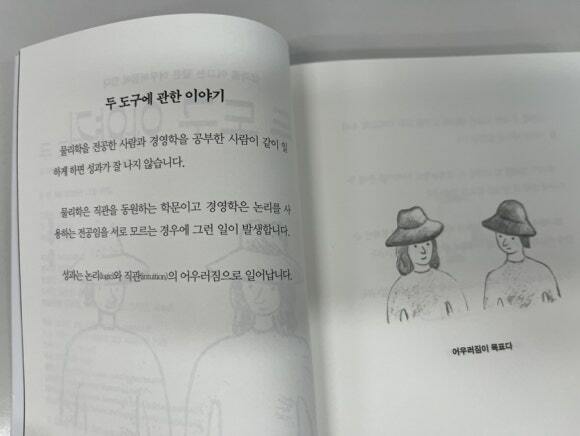 두 도구에 관한 이야기
물리학을 전공한 사람과 경영학을 공부한 사람이 같이 일
하게 하면 성과가 잘 나지 않습니다.
물리학은 직관을 동원하는 학문이고 경영학은 논리를 사
용하는 전공임을 서로 모르는 경우에 그런 일이 발생합니다.
성과는 논리(logic)와 직관(intuition)의 어우러짐으로 일어납니다.
어우러짐이 목표다